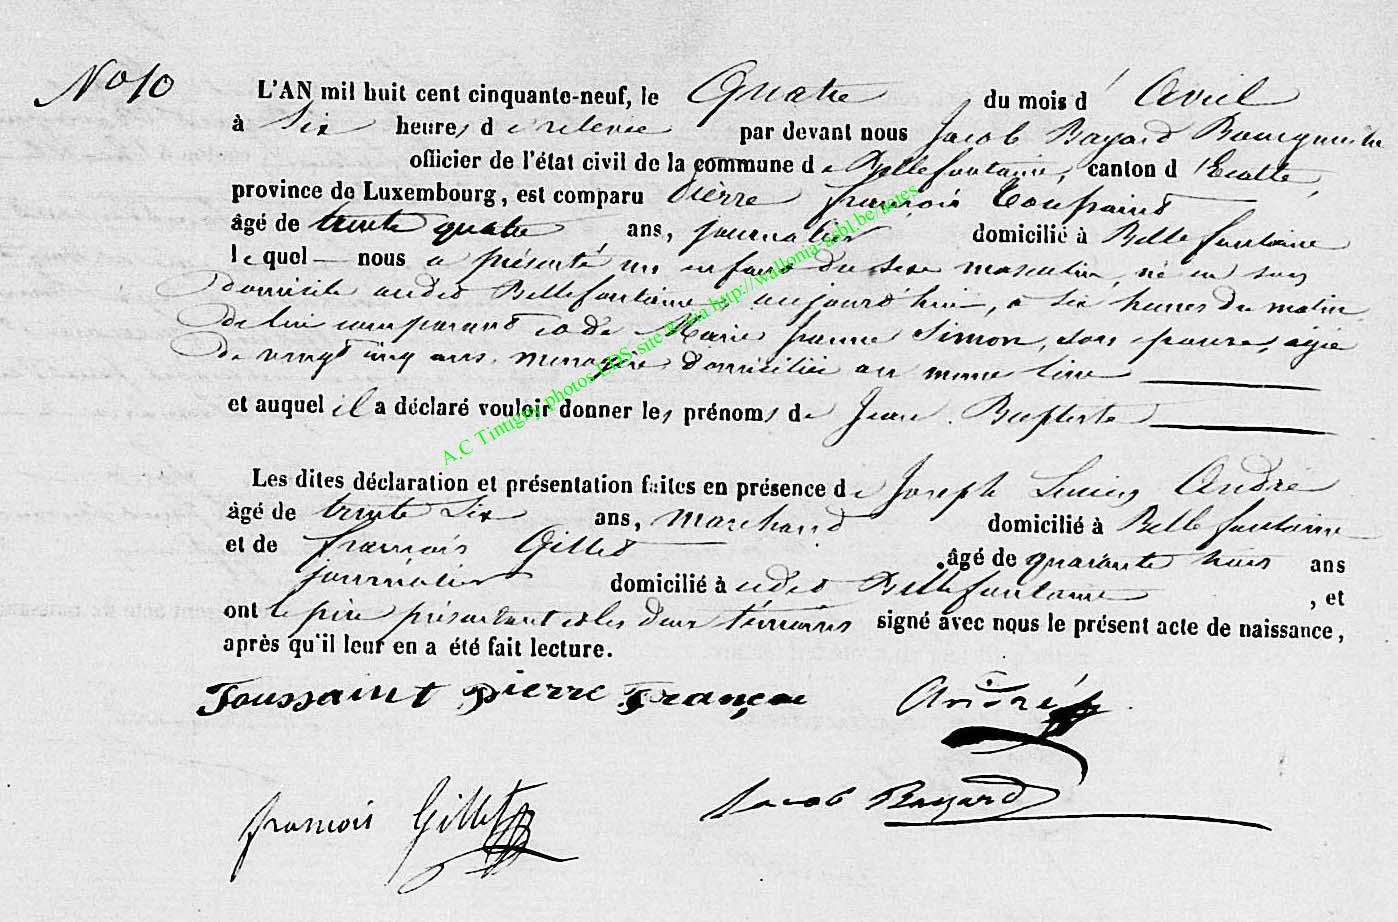 No 10
L'AN mil huit cent cinquante-neuf, le Quatre du mois d'Avril
à Six heures de relevée par devant nous Jacob Bayard Bourgmestre
officier de l'état civil de la commune de Bellefontaine, canton d'Etalle,
province de Luxembourg, est comparu Pierre françois Toussaint
âgé de trente quatre ans, journalier domicilié à Bellefontaine
lequel — nous a présenté un enfant du sexe masculin, né en son
domicile audit Bellefontaine aujourd'hui, à six heures du matin
de lui comparant et de Marie Jeanne Simon, son épouse, agée
de vingt cinq ans, menagère domiciliée au même lieu
et auquel il a déclaré vouloir donner les prénoms de Jean Baptiste
Les dites déclaration et présentation faites en présence de Joseph Lucien André
âgé de trente Six ans, marchand domicilié à Bellefontaine
et de françois Gillet âgé de quarante trois ans
journalier domicilié à udit Bellefontaine, et
ont le père présentant et les deux témoins signé avec nous le présent acte de naissance,
après qu'il leur en a été fait lecture.
Toussaint Pierre François André
françois Gillet Jacob Bayard
A.C Tintigny photos LDS site & via http://wallonia-asbl.be/actes